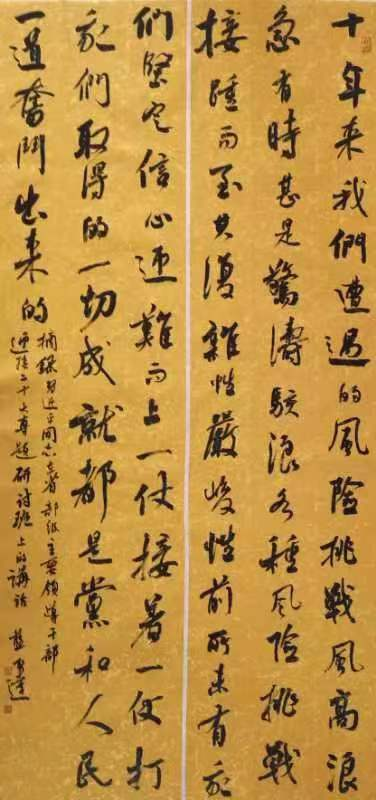 十年来我們遭遇的風險挑戰風高浪
急有時甚是驚濤駭浪各種風險挑戰
接踵而至其復雜性嚴峻性前所未有我
們堅定信心迎難而上一仗接着一仗打
我們取得的一切成就都是黨和人民
一道奮鬥出来的
摘錄習近平同志在省部級主要領導干部
迎接二十大專題研討班上的講話